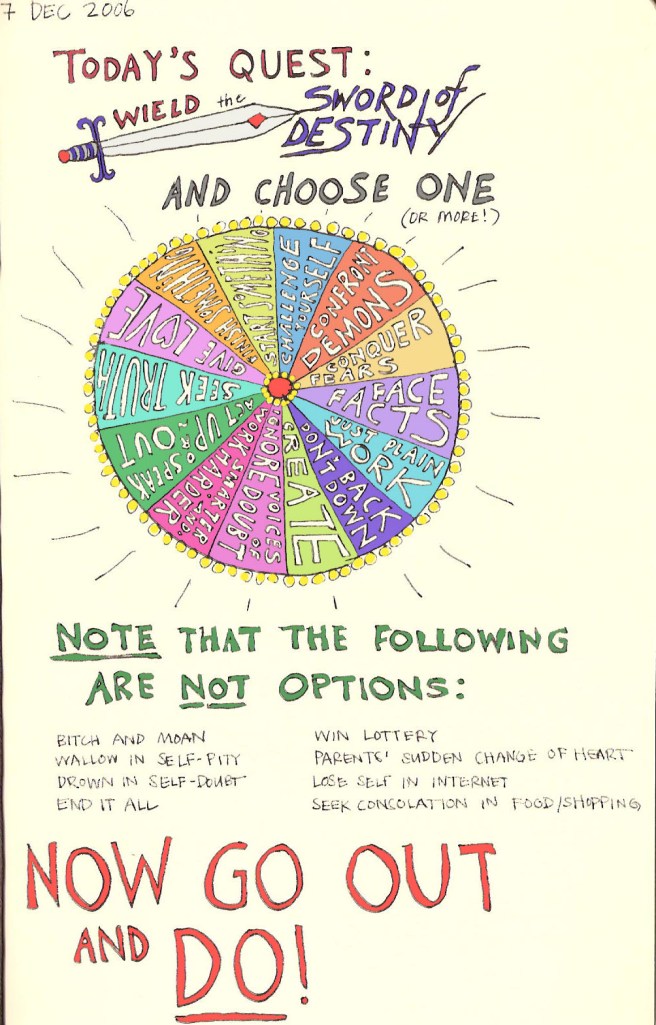 7 DEC 2006
TODAY'S QUEST:
WIELD the SWORD of
DESTINY
AND CHOOSE ONE
(OR MORE!)
CHALLENGE
YOURSELF
CONFRONT
DEMONS
CONQUER
FEARS
FACE
FACTS
JUST PLAIN
WORK
DON'T BACK
DOWN
CREATE
IGNORE VOICES
OF DOUBT
WORK SMARTER
AND HARDER
ACT UP OR
SPEAK OUT
SEEK TRUTH
GIVE LOVE
FINISH SOMETHING
START SOMETHING
NOTE THAT THE FOLLOWING
ARE NOT OPTIONS:
BITCH AND MOAN
WALLOW IN SELF-PITY
DROWN IN SELF-DOUBT
END IT ALL
WIN LOTTERY
PARENTS' SUDDEN CHANGE OF HEART
LOSE SELF IN INTERNET
SEEK CONSOLATION IN FOOD/SHOPPING
NOW GO OUT
AND DO!